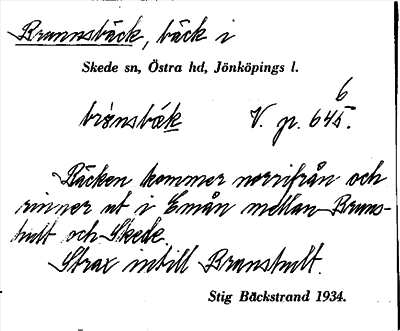 Brunnsbäck, bäck i
Skede sn, Östra hd, Jönköpings l.
6
brɵnsbæk V. p. 645.
Bäcken kommer norrifrån och
rinner ut i Emån mellan Bruns-
hult och Skede.
Strax intill Brunshult.
Stig Bäckstrand 1934.